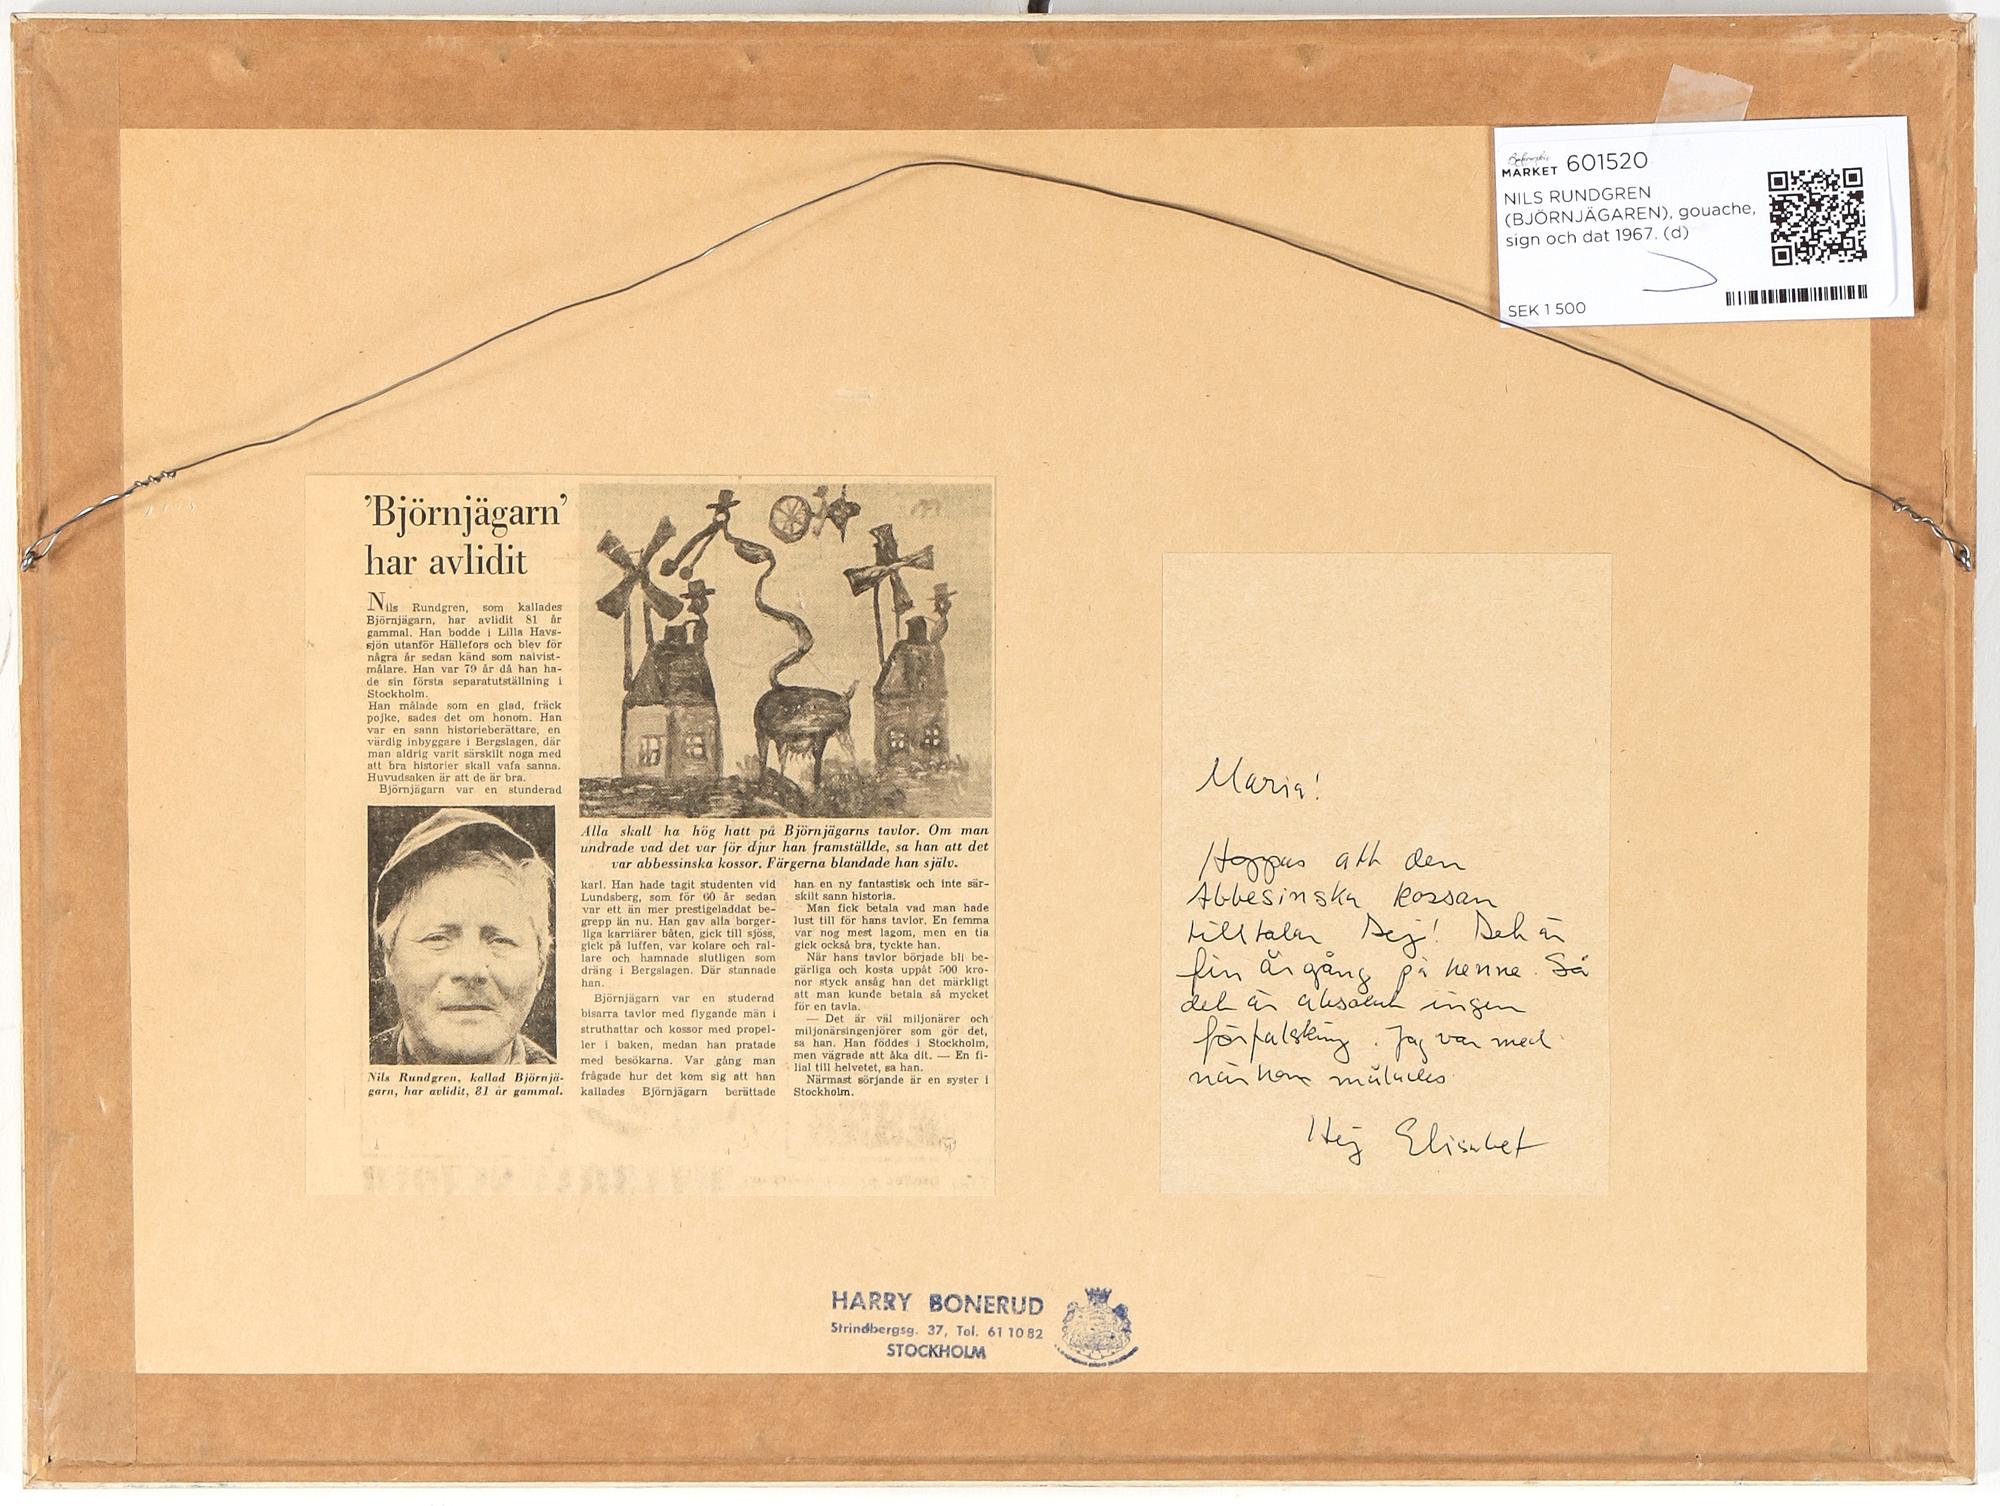 Bukowskis
MARKET 601520
NILS RUNDGREN
(BJÖRNJÄGAREN), gouache,
sign och dat 1967. (d)
SEK 1 500
'Björnjägarn'
har avlidit
Nils Rundgren, som kallades
Björnjägarn, har avlidit 81 år
gammal. Han bodde i Lilla Havs-
sjön utanför Hällefors och blev för
några år sedan känd som naivist-
målare. Han var 79 år då han ha-
de sin första separatutställning i
Stockholm.
Han målade som en glad, fräck
pojke, sades det om honom. Han
var en sann historieberättare, en
värdig inbyggare i Bergslagen, där
man aldrig varit särskilt noga med
att bra historier skall vafa sanna.
Huvudsaken är att de är bra.
Björnjägarn var en stunderad
Nils Rundgren, kallad Björnjä-
garn, har avlidit, 81 år gammal.
Alla skall ha hög hatt på Björnjägarns tavlor. Om man
undrade vad det var för djur han framställde, sa han att det
var abbessinska kossor. Färgerna blandade han själv.
karl. Han hade tagit studenten vid
Lundsberg, som för 60 år sedan
var ett än mer prestigeladdat be-
grepp än nu. Han gav alla borger-
liga karriärer båten, gick till sjöss,
gick på luffen, var kolare och ral-
lare och hamnade slutligen som
dräng i Bergslagen. Där stannade
han.
Björnjägarn var en studerad
bisarra tavlor med flygande män i
struthattar och kossor med propel-
ler i baken, medan han pratade
med besökarna. Var gång man
frågade hur det kom sig att han
kallades Björnjägarn berättade
han en ny fantastisk och inte sär-
skilt sann historia.
Man fick betala vad man hade
lust till för hans tavlor. En femma
var nog mest lagom, men en tia
gick också bra, tyckte han.
När hans tavlor började bli be-
gärliga och kosta uppåt 500 kro-
nor styck ansåg han det märkligt
att man kunde betala så mycket
för en tavla.
— Det är väl miljonärer och
miljonärsingenjörer som gör det,
sa han. Han föddes i Stockholm,
men vägrade att åka dit. — En fi-
lial till helvetet, sa han.
Närmast sörjande är en syster i
Stockholm.
Maria!
Hoppas att den
Abbesinska kossan
tilltalar Dej! Det är
fin årgång på henne. Så
det är absolut ingen
förfalskning. Jag var med
när hon målades
Hej Elisabet
HARRY BONERUD
Strindbergsg. 37, Tel. 61 10 82
STOCKHOLM